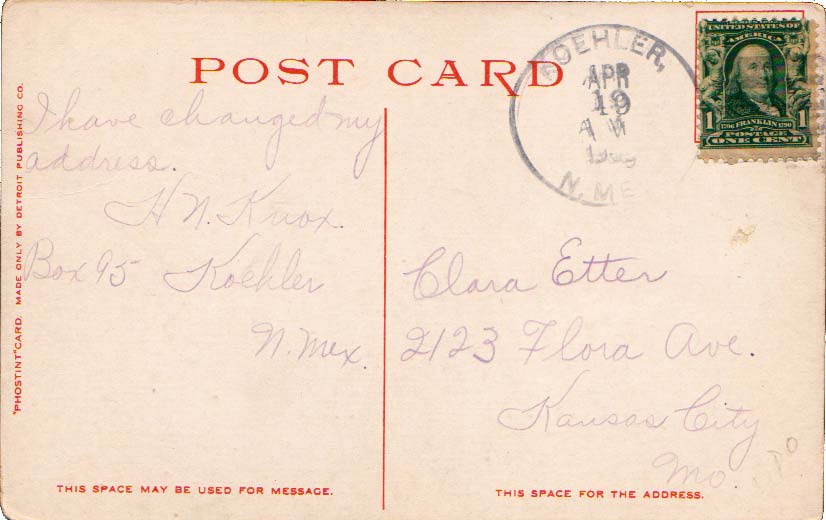 POST CARD
"PHOSTINT" CARD. MADE ONLY BY DETROIT PUBLISHING CO.
I have changed my
address.
H N. Knox.
Box 95 Koehler
N. Mex.
THIS SPACE MAY BE USED FOR MESSAGE.
KOEHLER,
APR
19
A M
N. ME
UNITED STATES OF
AMERICA
1 1
1706 FRANKLIN 1790
POSTAGE
ONE CENT
Clara Etter
2123 Flora Ave.
Kansas City
Mo.
THIS SPACE FOR THE ADDRESS.